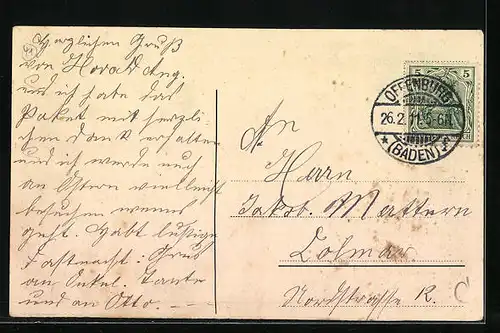 Herzlichen Gruß
von
und ich habe das
Paket mit herzli-
chen Dank erhalten
und ich werde euch
an Ostern vielleicht
besuchen wenns
geht. Habt lustige
Fastnacht: Gruß
an Onkel. Tante
und an Otto. —
5 5
OFFENBURG
26.2.11. 5-6N
*(BADEN)*
An
Herrn
Jakob. Mattern
Colmar
Nordstrasse R.
C